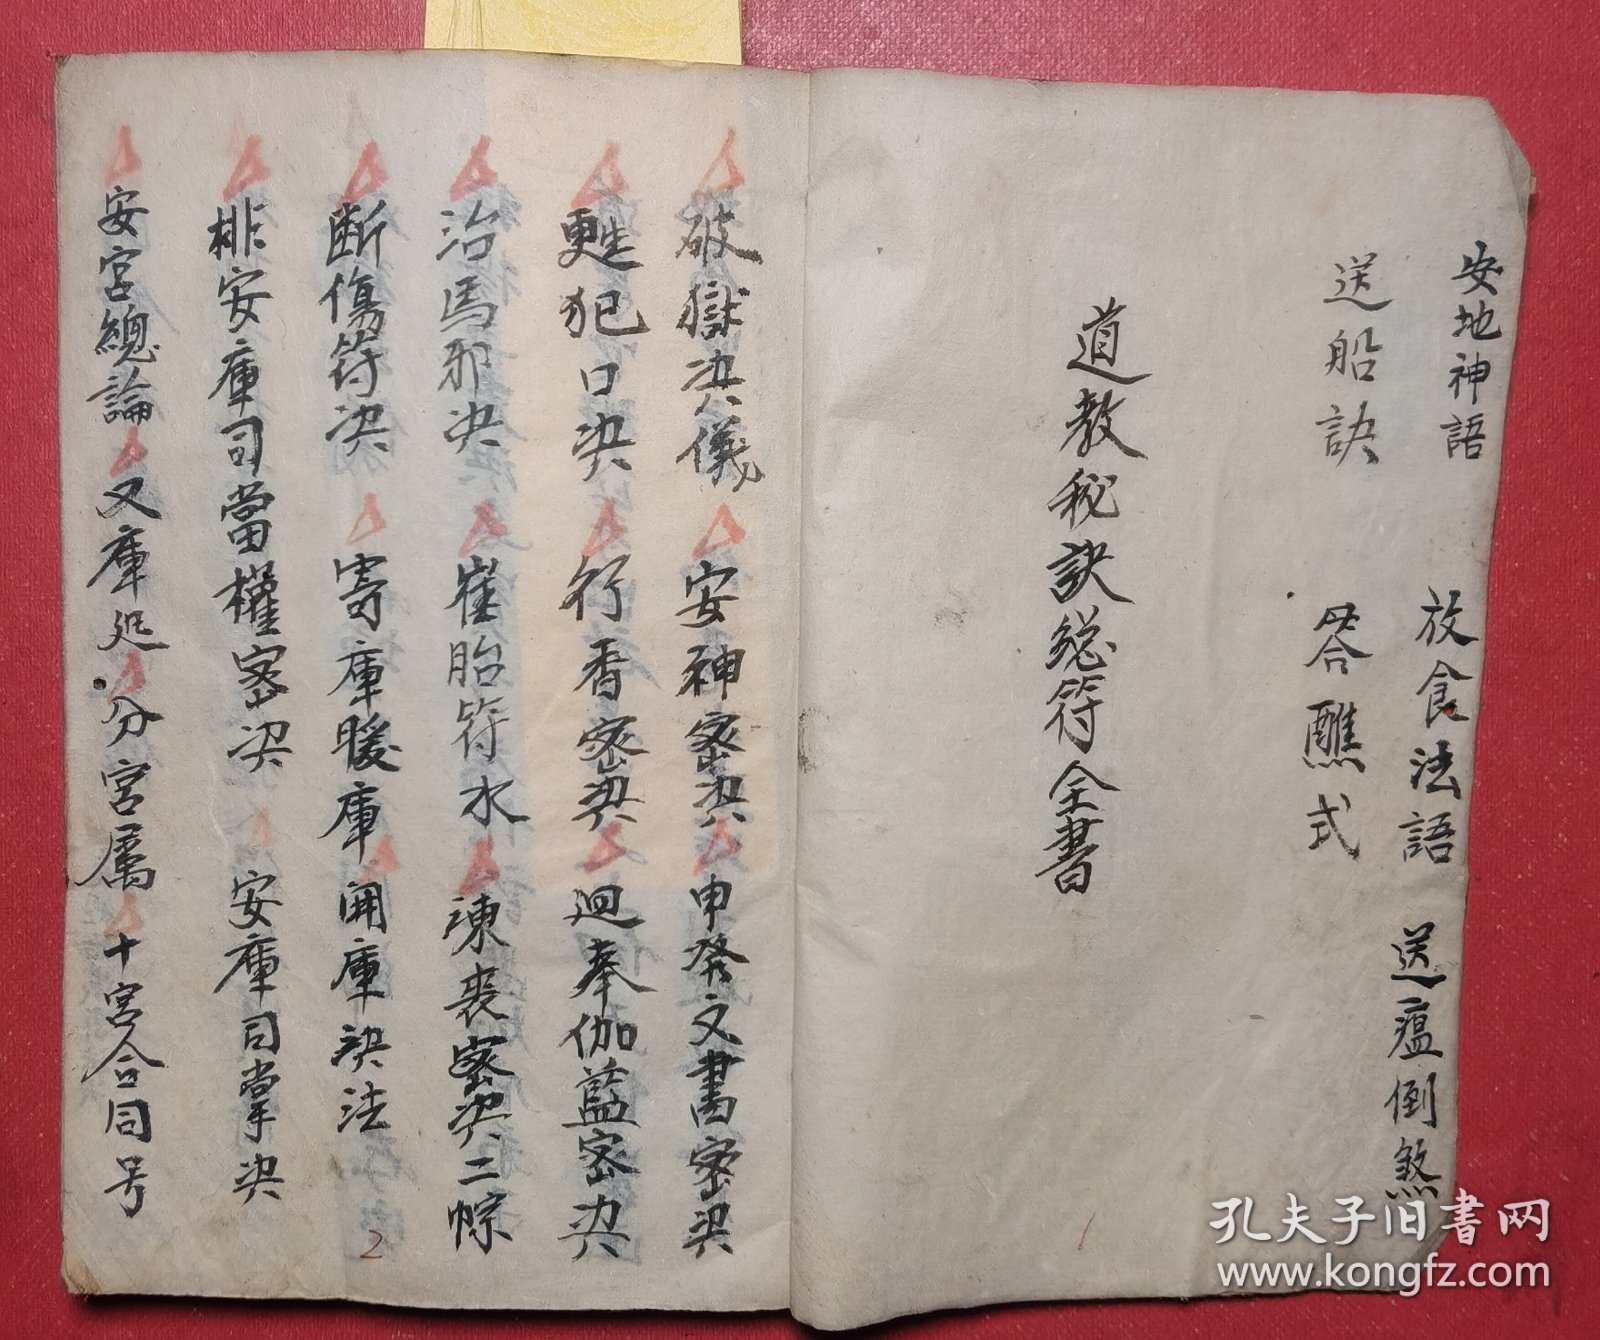 安地神語 放食法語 送瘟倒煞
送船訣 答醮式
道教秘訣總符全書
1
破獄決儀 安神密決 申發文書密決
犯口決 行香密決 迴奉伽藍密決
治馬邪決 崔胎符水 密決二
断傷符決 寄庫暖庫 開庫訣法
排安庫司當權密決 安庫司掌決
安宮總論 又庫 分宮属 十宮合同号
2
孔夫子旧书网
www.kongfz.com